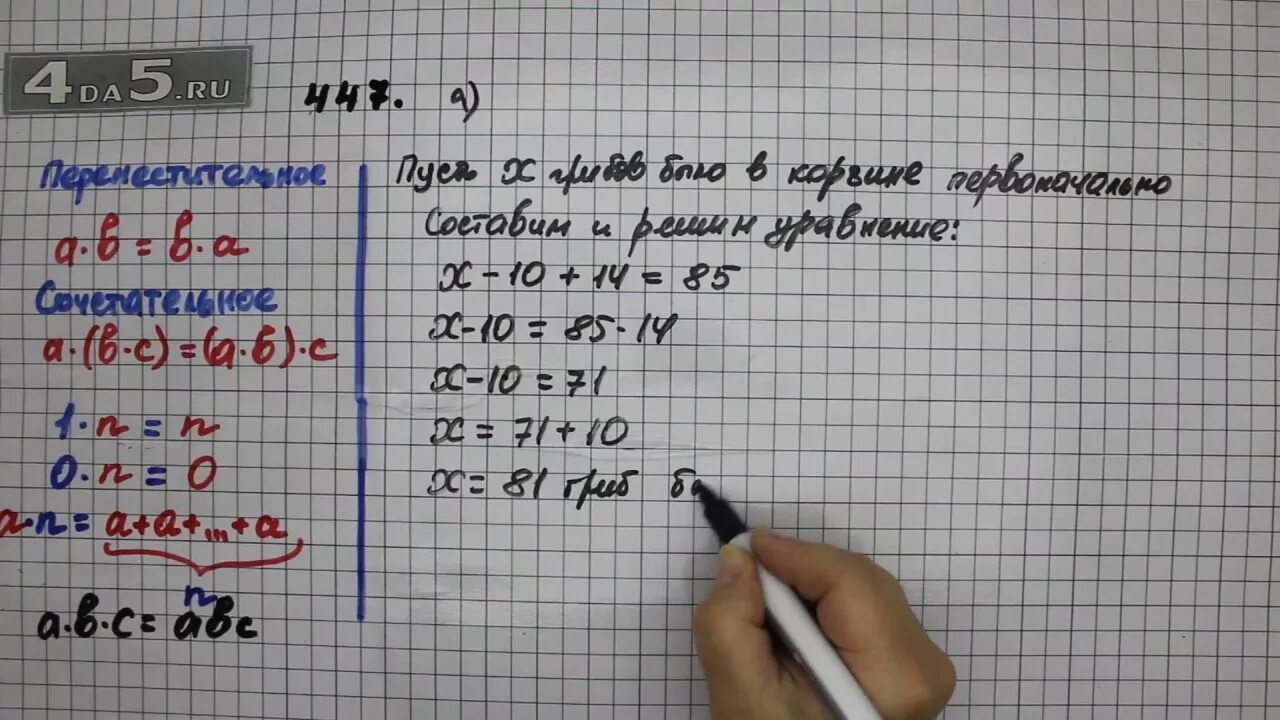 4DA5.RU
447. а)
Переместительное
a·b = b·a
Сочетательное
a·(b·c)=(a·b)·c
1·n = n
0·n = 0
a·n = a+a+...+a
n
a·b·c = abc
Пусть x грибов было в корзине первоначально
Составим и решим уравнение:
x-10+14=85
x-10=85-14
x-10=71
x=71+10
x=81 гриб